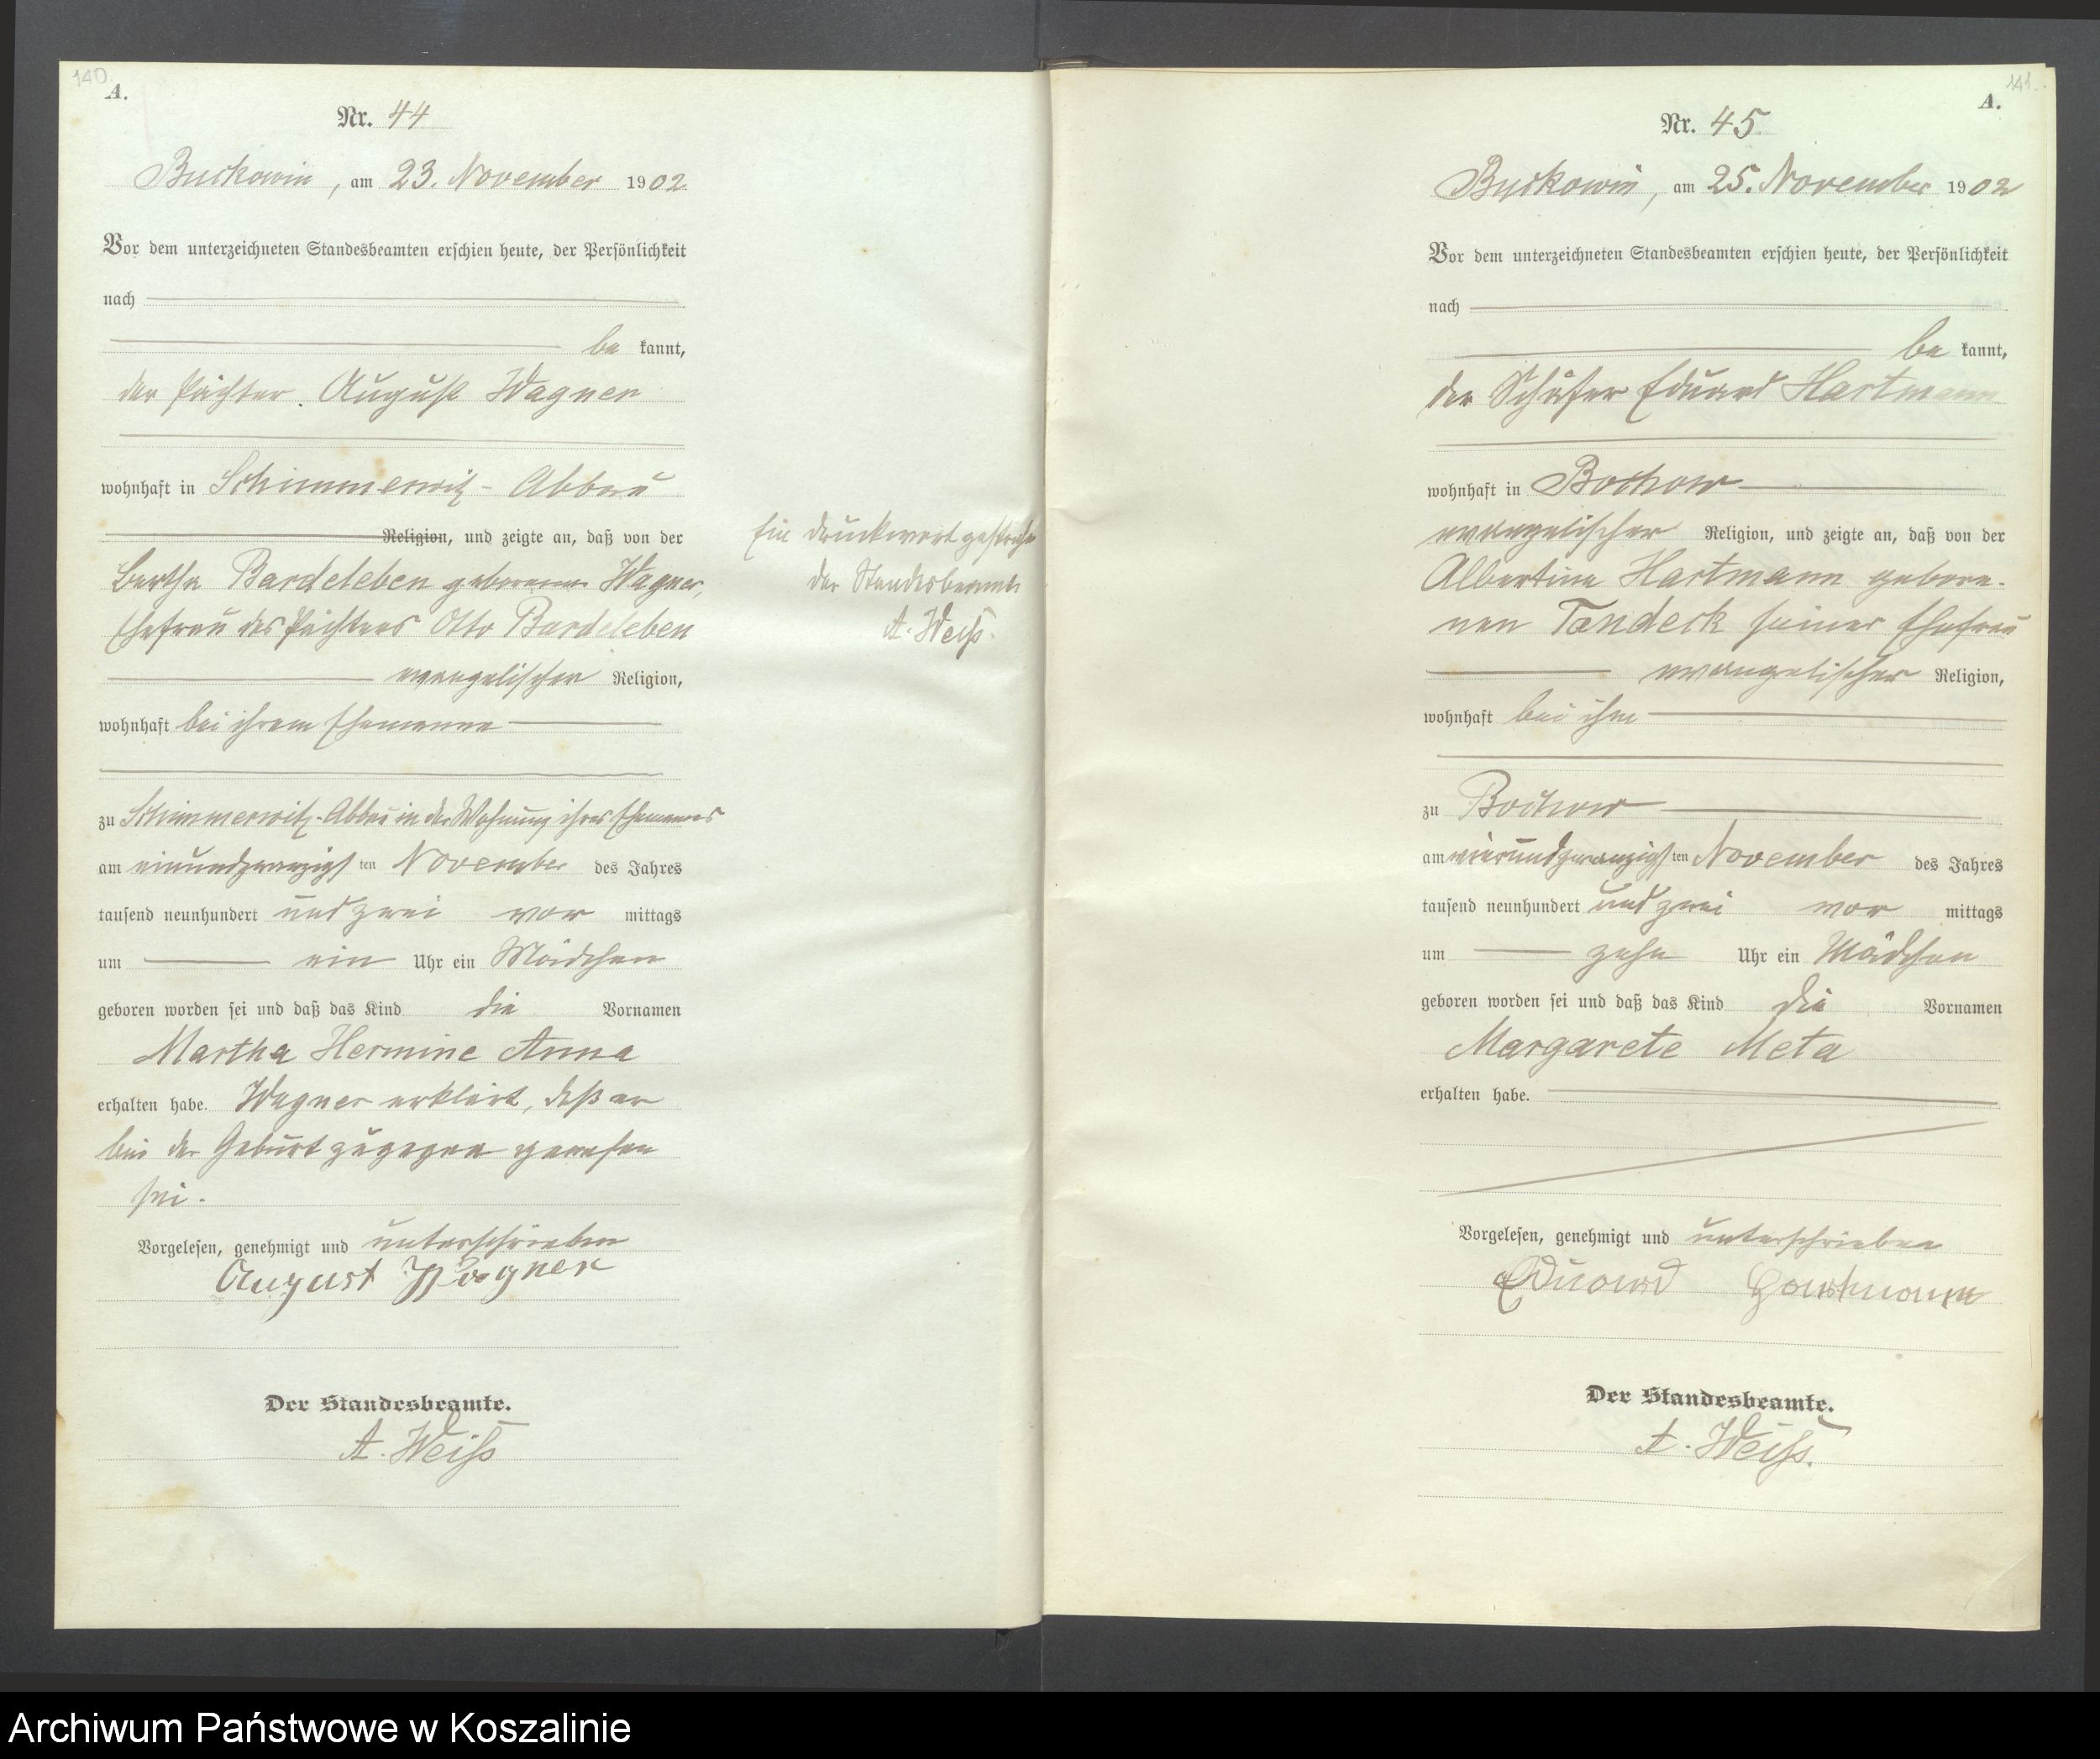 140
A.
Nr. 44
Buckowin, am 23. November 1902.
Vor dem unterzeichneten Standesbeamten erschien heute, der Persönlichkeit
nach
be kannt,
der Pächter August Wagner
wohnhaft in Schimmerwitz-Abbau
Religion, und zeigte an, daß von der
Bertha Bardeleben geborenen Wagner,
Ehefrau des Pächters Otto Bardeleben
evangelischer Religion,
wohnhaft bei ihrem Ehemanne
zu Schimmerwitz-Abbau in der Wohnung ihres Ehemannes
am einundzwanzigsten November des Jahres
tausend neunhundert und zwei vor mittags
um ein Uhr ein Mädchen
geboren worden sei und daß das Kind die Vornamen
Martha Hermine Anna
erhalten habe. Wagner erklärt, daß er
bei der Geburt zugegen gewesen
sei.
Vorgelesen, genehmigt und unterschrieben
August Wagner
Der Standesbeamte.
A. Weiß
Ein Druckwort gestrichen
Der Standesbeamte
A. Weiß.
141.
A.
Nr. 45.
Buckowin, am 25. November 1902
Vor dem unterzeichneten Standesbeamten erschien heute, der Persönlichkeit
nach
be kannt,
der Schäfer Eduard Hartmann
wohnhaft in Bochow
evangelischer Religion, und zeigte an, daß von der
Albertine Hartmann gebore-
nen Tandeck seiner Ehefrau
evangelischer Religion,
wohnhaft bei ihm
zu Bochow
am vierundzwanzigsten November des Jahres
tausend neunhundert und zwei vor mittags
um zehn Uhr ein Mädchen
geboren worden sei und daß das Kind die Vornamen
Margarete Meta
erhalten habe.
Vorgelesen, genehmigt und unterschrieben
Eduard Hartmann
Der Standesbeamte.
A. Weiß.
Archiwum Państwowe w Koszalinie